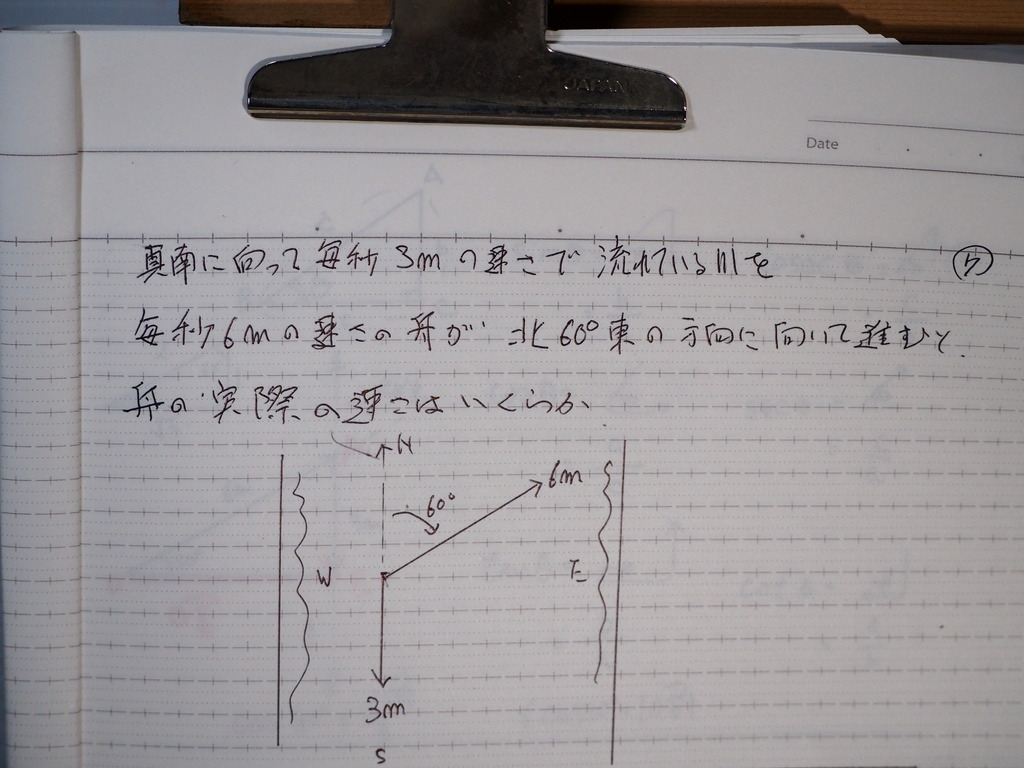 JAPAN
Date
真南に向って毎秒3mの速さで流れている川を
ケ
毎秒6mの速さの舟が北60°東の方向に向いて進むと
舟の実際の速さはいくらか
N
6m
60°
W
E
3m
S